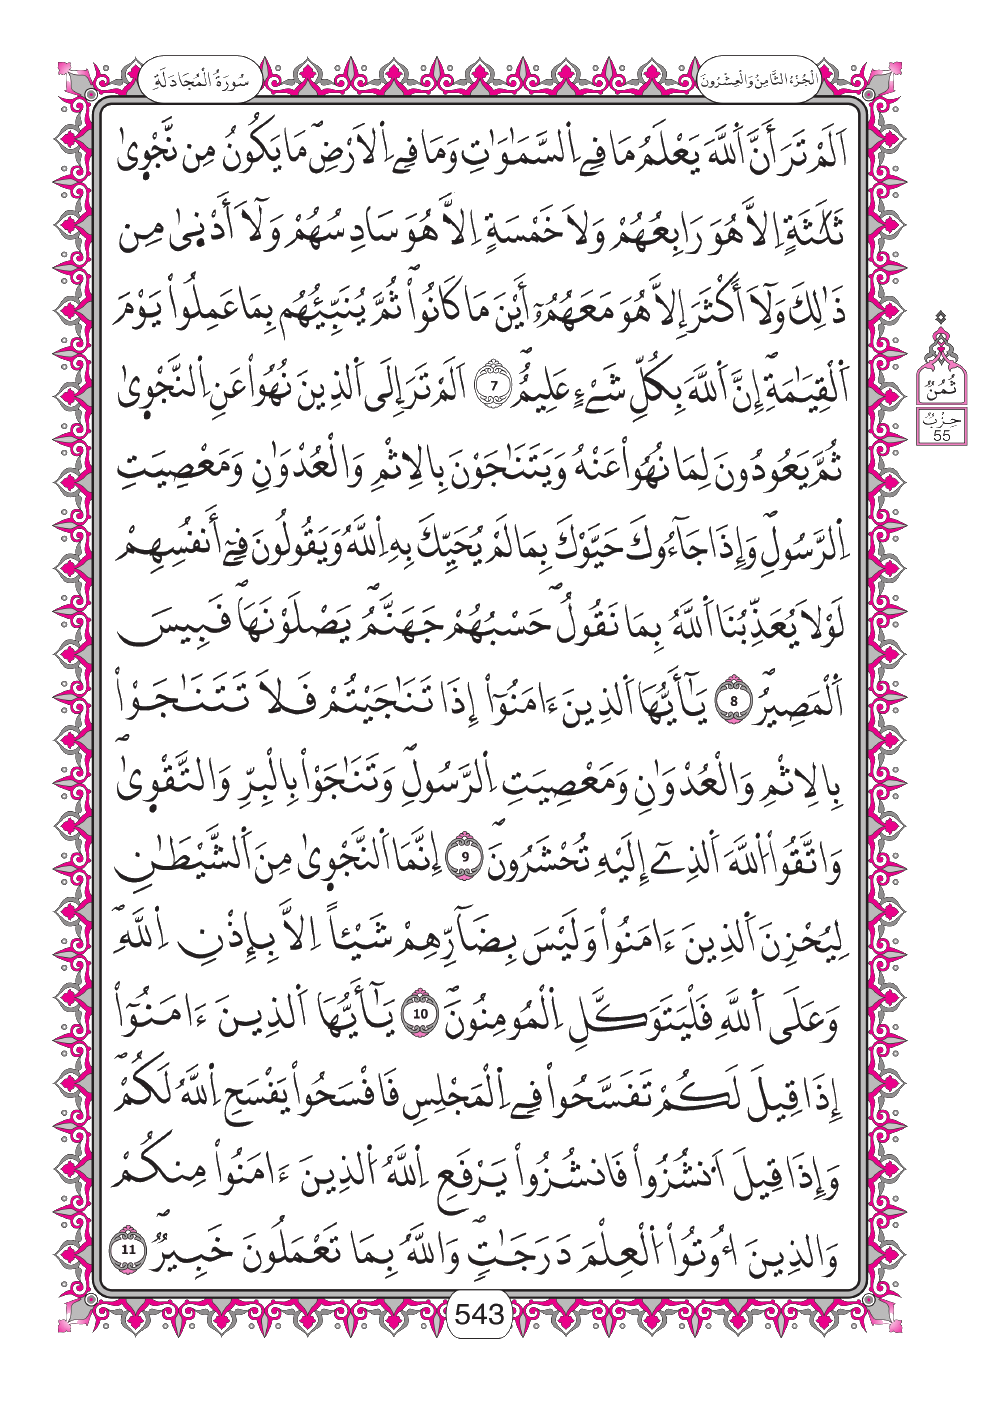 سُورَةُ الْمُجَادَلَةِ
الْجُزْءُ الثَّامِنُ وَالْعِشْرُونَ
اَلَمْ تَرَ أَنَّ اَ۬للَّهَ يَعْلَمُ مَا فِے اِ۬لسَّمَٰوَٰتِ وَمَا فِے اِ۬لَارْضِۖ مَا يَكُونُ مِن نَّجْو۪يٰ
ثَلَٰثَةٍ اِلَّا هُوَ رَابِعُهُمْ وَلَا خَمْسَةٍ اِلَّا هُوَ سَادِسُهُمْ وَلَآ أَدْن۪يٰ مِن
ذَٰلِكَ وَلَآ أَكْثَرَ إِلَّا هُوَ مَعَهُمُۥٓ أَيْنَ مَا كَانُواْۖ ثُمَّ يُنَبِّئُهُم بِمَا عَمِلُواْ يَوْمَ
اَ۬لْقِيَٰمَةِۖ إِنَّ اَ۬للَّهَ بِكُلِّ شَےْءٍ عَلِيمٌۖ 7 اَلَمْ تَرَ إِلَى اَ۬لذِينَ نُهُواْ عَنِ اِ۬لنَّجْو۪يٰ
ثُمَّ يَعُودُونَ لِمَا نُهُواْ عَنْهُ وَيَتَنَٰجَوْنَ بِالِاثْمِ وَالْعُدْوَٰنِ وَمَعْصِيَتِ
اِ۬لرَّسُولِۖ وَإِذَا جَآءُوكَ حَيَّوْكَ بِمَا لَمْ يُحَيِّكَ بِهِ اِ۬للَّهُ وَيَقُولُونَ فِےٓ أَنفُسِهِمْ
لَوْلَا يُعَذِّبُنَا اَ۬للَّهُ بِمَا نَقُولُۖ حَسْبُهُمْ جَهَنَّمُۖ يَصْلَوْنَهَاۖ فَبِيسَ
اَ۬لْمَصِيرُۖ 8 يَٰٓأَيُّهَا اَ۬لذِينَ ءَامَنُوٓاْ إِذَا تَنَٰجَيْتُمْ فَلَا تَتَنَٰجَوْاْ
بِالِاثْمِ وَالْعُدْوَٰنِ وَمَعْصِيَتِ اِ۬لرَّسُولِۖ وَتَنَٰجَوْاْ بِالْبِرِّ وَالتَّقْو۪يٰۖ
وَاتَّقُواْ اُ۬للَّهَ اَ۬لذِےٓ إِلَيْهِ تُحْشَرُونَۖ 9 إِنَّمَا اَ۬لنَّجْو۪يٰ مِنَ اَ۬لشَّيْطَٰنِ
لِيُحْزِنَ اَ۬لذِينَ ءَامَنُواْ وَلَيْسَ بِضَآرِّهِمْ شَيْـٔاً اِلَّا بِإِذْنِ اِ۬للَّهِۖ
وَعَلَى اَ۬للَّهِ فَلْيَتَوَكَّلِ اِ۬لْمُومِنُونَۖ 10 يَٰٓأَيُّهَا اَ۬لذِينَ ءَامَنُوٓاْ
إِذَا قِيلَ لَكُمْ تَفَسَّحُواْ فِے اِ۬لْمَجْلِسِ فَافْسَحُواْ يَفْسَحِ اِ۬للَّهُ لَكُمْۖ
وَإِذَا قِيلَ اَ۟نشُزُواْ فَانشُزُواْ يَرْفَعِ اِ۬للَّهُ اُ۬لذِينَ ءَامَنُواْ مِنكُمْ
وَالذِينَ أُوتُواْ اُ۬لْعِلْمَ دَرَجَٰتٍۖ وَاللَّهُ بِمَا تَعْمَلُونَ خَبِيرٌۖ 11
ثُمُنٌ
حِزْبُ
55
543